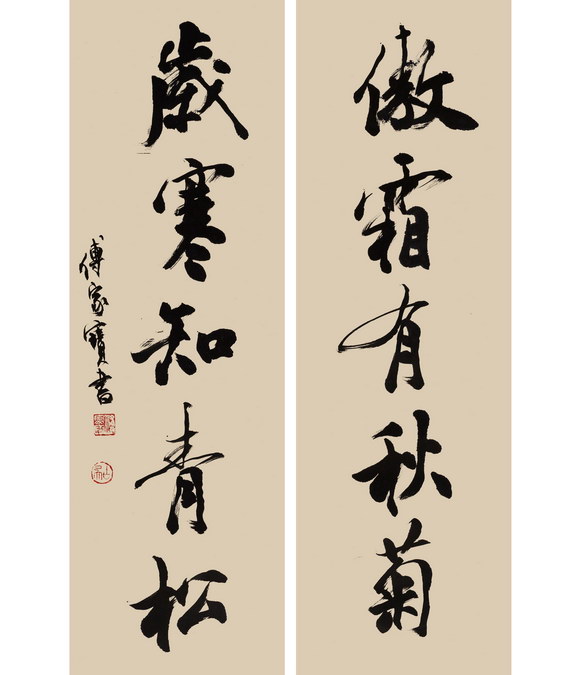 傲霜有秋菊
歲寒知青松
傅家寶書